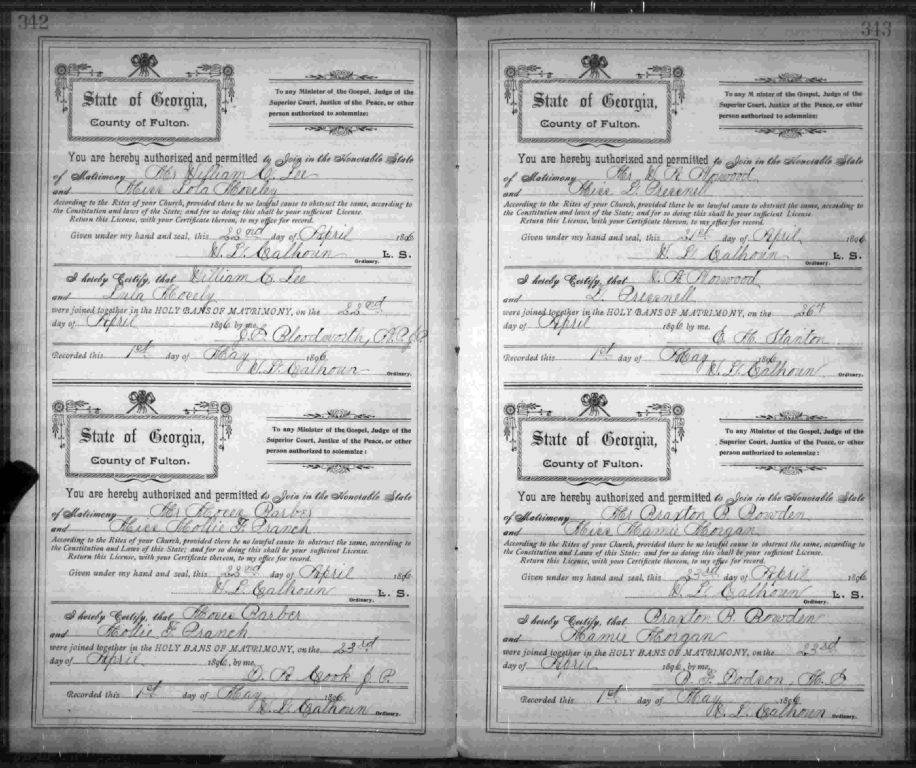 342
State of Georgia,
County of Fulton.
To any Minister of the Gospel, Judge of the
Superior Court, Justice of the Peace, or other
person authorized to solemnize:
You are hereby authorized and permitted to Join in the Honorable State
of Matrimony Mr William C. Lee
and Miss Lola Moseley
According to the Rites of your Church, provided there be no lawful cause to obstruct the same, according to
the Constitution and laws of this State; and for so doing this shall be your sufficient License.
Return this License, with your Certificate thereon, to my office for record.
Given under my hand and seal, this 22nd day of April 1896
W. L. Calhoun L. S.
Ordinary.
I hereby Certify, that William C. Lee
and Lula
were joined together in the HOLY BANS OF MATRIMONY, on the 22nd
day of April 1896 by me.
Bloodworth,
Recorded this 1st day of May 1896
W. L. Calhoun Ordinary.
State of Georgia,
County of Fulton.
To any Minister of the Gospel, Judge of the
Superior Court, Justice of the Peace, or other
person authorized to solemnize:
You are hereby authorized and permitted to Join in the Honorable State
of Matrimony Mr Barber
and Miss Mollie F. Branch
According to the Rites of your Church, provided there be no lawful cause to obstruct the same, according to
the Constitution and Laws of this State; and for so doing this shall be your sufficient License.
Return this License, with your Certificate thereon, to my office for record.
Given under my hand and seal, this 22nd day of April 1896
W. L. Calhoun L. S.
Ordinary.
I hereby Certify, that Barber
and Mollie F. Branch
were joined together in the HOLY BANS OF MATRIMONY, on the 23rd
day of April 1896, by me,
Cook J. P.
Recorded this 1st day of May 1896
W. L. Calhoun Ordinary.
343
State of Georgia,
County of Fulton.
To any Minister of the Gospel, Judge of the
Superior Court, Justice of the Peace, or other
person authorized to solemnize:
You are hereby authorized and permitted to Join in the Honorable State
of Matrimony Mr
and Miss L. Pressnell
According to the Rites of your Church, provided there be no lawful cause to obstruct the same, according to
the Constitution and laws of the State; and for so doing this shall be your sufficient License.
Return this License, with your Certificate thereon, to my office for record.
Given under my hand and seal, this 21st day of April 1896
W. L. Calhoun L. S.
Ordinary.
I hereby Certify, that
and L. Pressnell
were joined together in the HOLY BANS OF MATRIMONY, on the 26th
day of April 1896 by me.
E. M. Stanton
Recorded this 1st day of May 1896
W. L. Calhoun Ordinary.
State of Georgia,
County of Fulton.
To any Minister of the Gospel, Judge of the
Superior Court, Justice of the Peace, or other
person authorized to solemnize:
You are hereby authorized and permitted to Join in the Honorable State
of Matrimony Mr Braxton B. Bowden
and Miss Mamie Morgan
According to the Rites of your Church, provided there be no lawful cause to obstruct the same, according to
the Constitution and Laws of this State: and for so doing this shall be your sufficient License.
Return this License, with your Certificate thereon, to my office for record.
Given under my hand and seal, this 23rd day of April 1896
W. L. Calhoun L. S.
Ordinary.
I hereby Certify, that Braxton B. Bowden
and Mamie Morgan
were joined together in the HOLY BANS OF MATRIMONY, on the 23rd
day of April 1896, by me,
Dodson,
Recorded this 1st day of May 1896
W. L. Calhoun Ordinary.